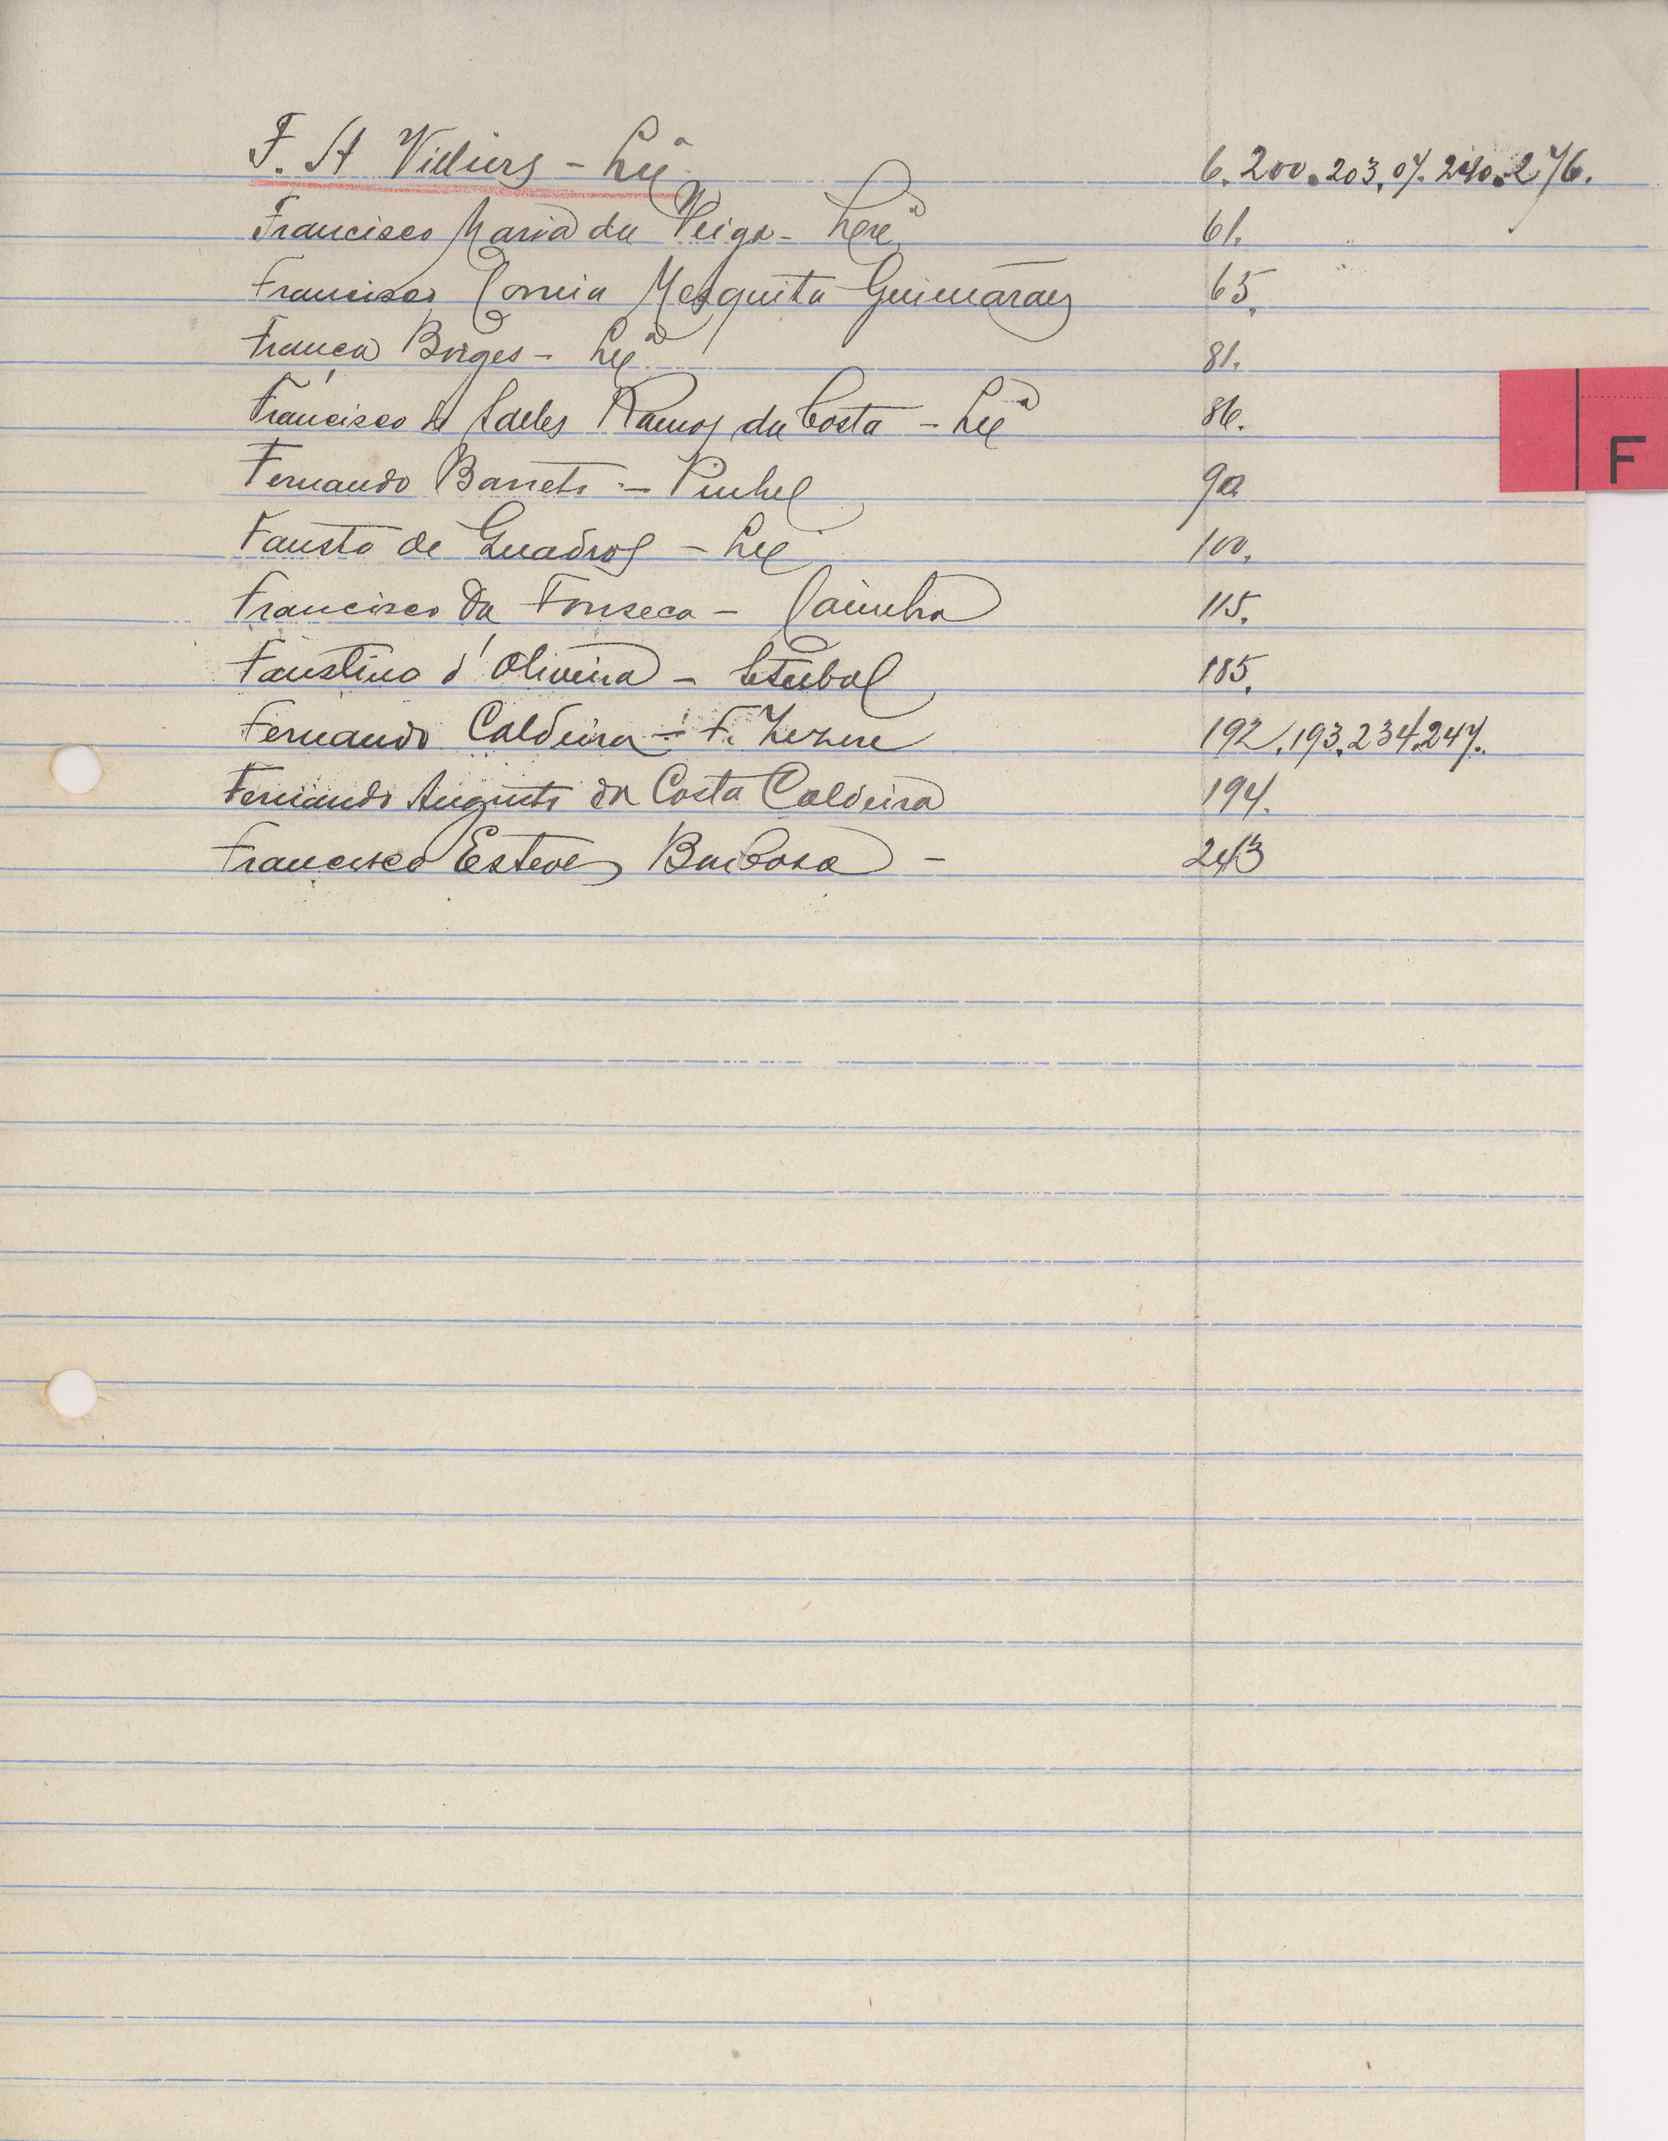 F. St Villiers - Lxª 6. 200. 203. 07. 240. 276.
Francisco Maria da Veiga - Lxª 61.
Francisco Correia Mesquita Guimarães 65.
França Borges - Lxª 81.
Francisco de Salles Ramos da Costa - Lxª 86.
F
Fernando Barreto - Pinhel 90
Fausto de Quadros - Lxª 100.
Francisco da Fonseca - Coimbra 115.
Faustino d'Oliveira - Setubal 185.
Fernando Caldeira - F. Zezere 192. 193. 234. 247.
Fernando Augusto da Costa Caldeira 194.
Francisco Esteves Barbosa - 243